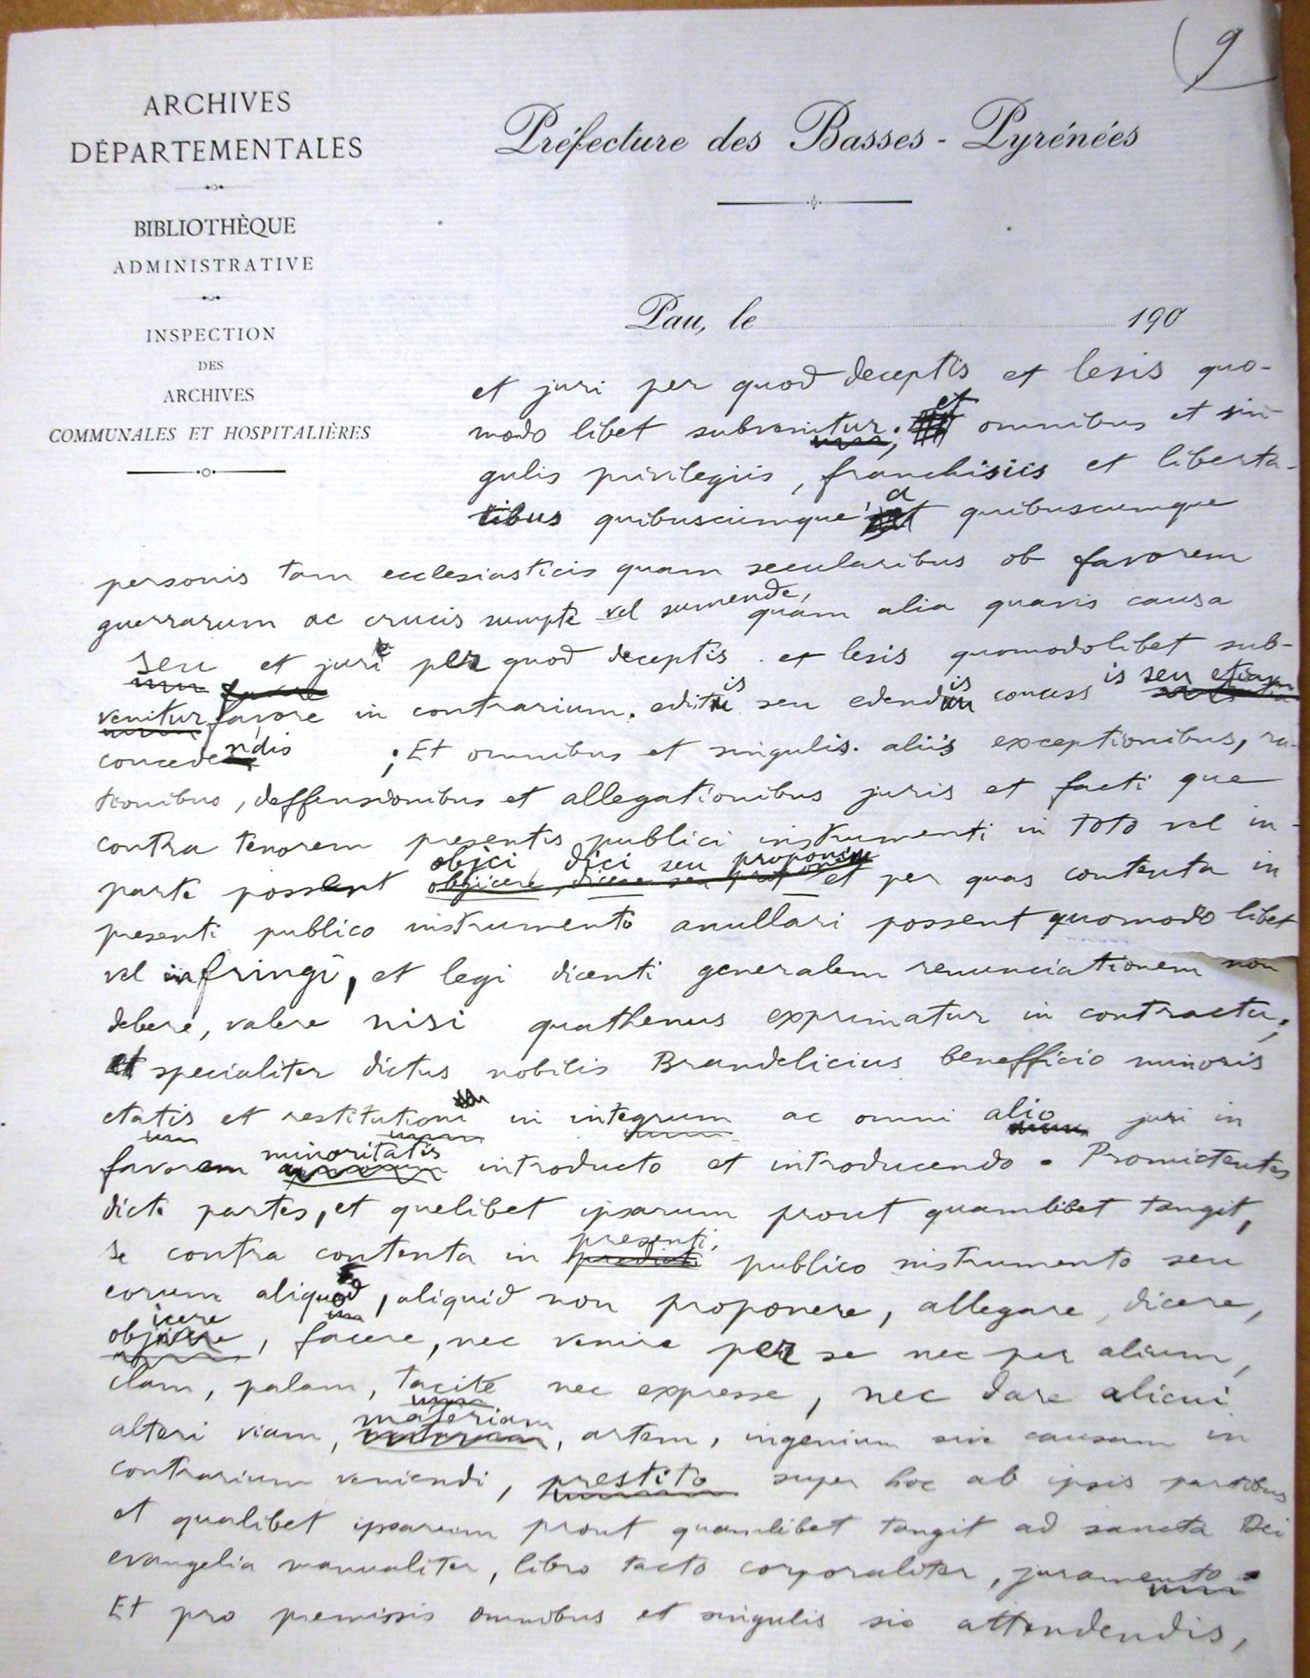 9
ARCHIVES
DÉPARTEMENTALES
BIBLIOTHÈQUE
ADMINISTRATIVE
INSPECTION
DES
ARCHIVES
COMMUNALES ET HOSPITALIÈRES
Préfecture des Basses-Pyrénées
Pau, le 190
et juri per quod deceptis et lesis quo-
modo libet subvenitur; et omnibus et sin-
gulis privilegiis, franchisiis et liberta-
tibus quibuscumque, a quibuscumque
personis tam ecclesiasticis quam secularibus ob favorem
guerrarum ac crucis sumpte vel sumende, quam alia quavis causa
seu et jure per quod deceptis et lesis quomodolibet sub-
venitur favore in contrarium, editis seu edendis concessis seu etiam
concedendis; Et omnibus et singulis aliis exceptionibus, ra-
tionibus, deffensionibus et allegationibus juris et facti que
contra tenorem presentis publici instrumenti in toto vel in
parte possent objici dici seu proponi et per quas contenta in
presenti publico instrumento anullari possent quomodo libet
vel infringi, et legi dicenti generalem renunciationem non
debere, valere nisi quathenus exprimatur in contractu;
et specialiter dictus nobilis Brandelicius benefficio minoris
etatis et restitutioni in integrum ac omni alio juri in
favorem minoritatis introducto et introducendo. Promictentes
dicte partes, et quelibet ipsarum prout quamlibet tangit,
se contra contenta in presenti publico instrumento seu
eorum aliquod, aliquid non proponere, allegare, dicere,
objicere, facere, nec venire per se nec per alium,
clam, palam, tacite nec expresse, nec dare alicui
alteri viam, materiam, artem, ingenium sive causam in
contrarium veniendi, prestito super hoc ab ipsis partibus
et qualibet ipsarum prout quamlibet tangit ad sancta Dei
evangelia manualiter, libro tacto corporaliter, juramento.
Et pro premissis omnibus et singulis sic attendendis,